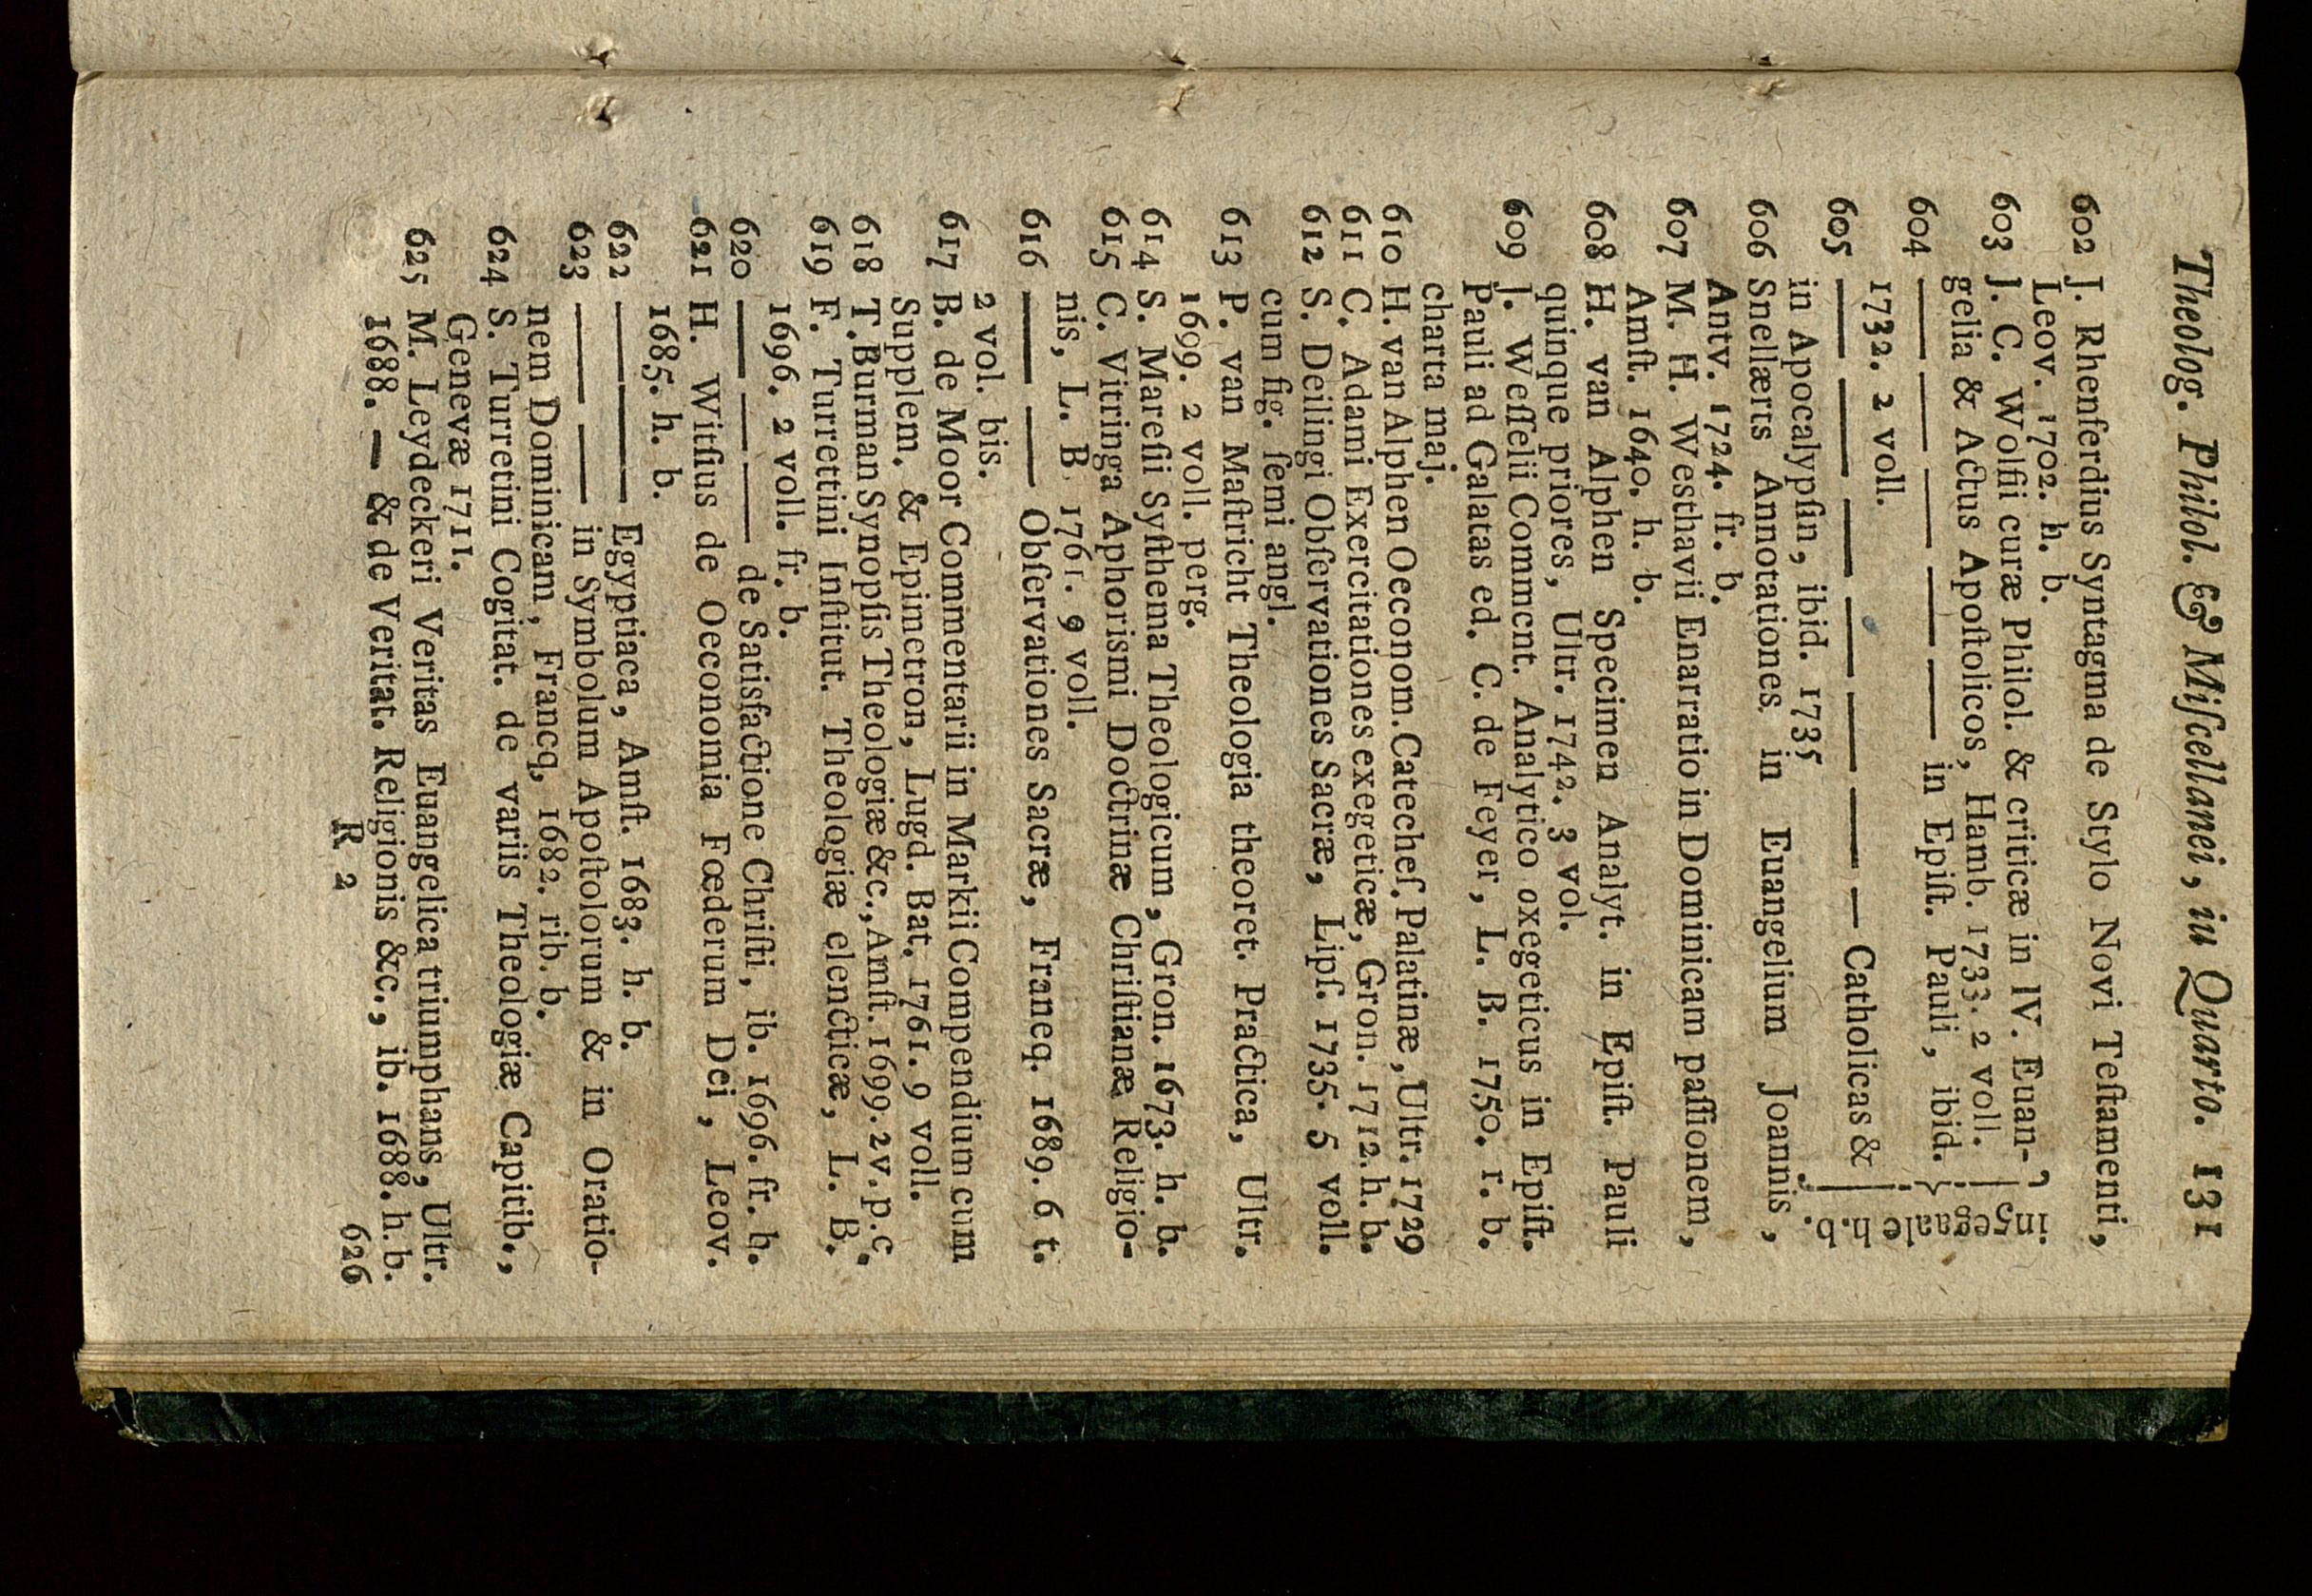 Theolog. Philol. & Miſcellanei, in Quarto. 131
602 J. Rhenferdius Syntagma de Stylo Novi Teſtamenti,
Leov. 1702. h. b.
603 J. C. Wolfii curæ Philol. & criticæ in IV. Euan-
gelia & Actus Apoſtolicos, Hamb. 1733. 2 voll.
604 —— —— —— —— —— in Epiſt. Pauli, ibid.
1732. 2 voll.
605 —— —— —— —— —— —— — Catholicas &
in Apocalypſin, ibid. 1735
in 5 egaale h. b.
606 Snellærts Annotationes in Euangelium Joannis,
Antv. 1724. fr. b.
607 M. H. Westhavii Enarratio in Dominicam paſſionem,
Amſt. 1640. h. b.
608 H. van Alphen Specimen Analyt. in Epiſt. Pauli
quinque priores, Ultr. 1742. 3 vol.
609 J. Weſſelii Commcnt. Analytico oxegeticus in Epiſt.
Pauli ad Galatas ed. C. de Feyer, L. B. 1750. r. b.
charta maj.
610 H. van Alphen Oeconom. Catecheſ. Palatinæ, Ultr. 1729
611 C. Adami Exercitationes exegeticæ, Gron. 1712. h. b.
612 S. Deilingi Obſervationes Sacræ, Lipſ. 1735. 5 voll.
cum fig. ſemi angl.
613 P. van Maſtricht Theologia theoret. Practica, Ultr.
1699. 2 voll. perg.
614 S. Mareſii Syſthema Theologicum, Gron. 1673. h. b.
615 C. Vitringa Aphorismi Doctrinæ Chriſtianæ Religio-
nis, L. B 1761. 9 voll.
616 —— —— Obſervationes Sacræ, Franeq. 1689. 6 t.
2 vol. bis.
617 B. de Moor Commentarii in Markii Compendium cum
Supplem. & Epimetron, Lugd. Bat. 1761. 9 voll.
618 T. Burman Synopſis Theologiæ &c., Amſt. 1699. 2 v. p. c.
619 F. Turrettini Inſtitut. Theologiæ elencticæ, L. B.
1696. 2 voll. fr. b.
620 —— —— —— de Satisfactione Chriſti, ib. 1696. fr. h.
621 H. Witſius de Oeconomia Fœderum Dei, Leov.
1685. h. b.
622 —— —— Egyptiaca, Amſt. 1683. h. b.
623 —— —— in Symbolum Apoſtolorum & in Oratio-
nem Dominicam, Francq, 1682. rib. b.
624 S. Turretini Cogitat. de variis Theologiæ Capitib.,
Genevæ 1711.
625 M. Leydeckeri Veritas Euangelica triumphans, Ultr.
1688. — & de Veritat. Religionis &c., ib. 1688. h. b.
R 2 626